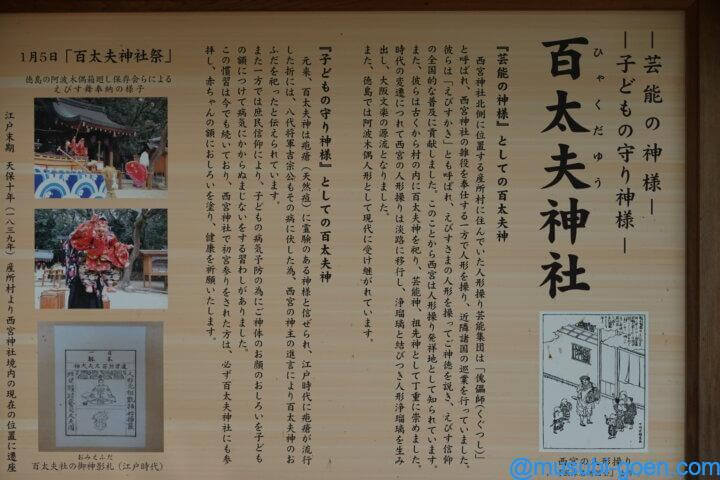 ―芸能の神様―
―子どもの守り神様―
百太夫神社
ひゃくだゆう
西宮の人形操り
『芸能の神様』としての百太夫神
西宮神社北側に位置する産所村に住んでいた人形操り芸能集団は「傀儡師(くぐつし)」
と呼ばれ、西宮神社の雑役を奉仕する一方で人形を操り、近隣諸国の巡業を行っていました。
彼らは「えびすかき」とも呼ばれ、えびすさまの人形を操ってご神徳を説き、えびす信仰
の全国的な普及に貢献しました。このことから西宮は人形操り発祥地として知られています。
また、彼らは古くから村の内に百太夫神を祀り、芸能神、祖先神として丁重に崇めました。
時代の変遷につれて西宮の人形操りは淡路に移行し、浄瑠璃と結びつき人形浄瑠璃を生み
出し、大阪文楽の源流となりました。
また、徳島では阿波木偶人形として現代に受け継がれています。
『子どもの守り神様』としての百太夫神
元来、百太夫神は疱瘡(天然痘)に霊験のある神様と信ぜられ、江戸時代に疱瘡が流行
した折には、八代将軍吉宗公もその病に伏した為、西宮の神主の進言により百太夫神のお
ふだを祀ったと伝えられています。
また一方では庶民信仰により、子どもの病気予防の為にご神体のお顔のおしろいを子ども
の額につけて病気にかからぬまじないをする習わしがありました。
この慣習は今でも続いており、西宮神社で初宮参りをされた方は、必ず百太夫神社にも参
拝し、赤ちゃんの額におしろいを塗り、健康を祈願いたします。
1月5日「百太夫神社祭」
徳島の阿波木偶箱廻し保存会らによる
えびす舞奉納の様子
おみえふだ
百太夫社の御神影札(江戸時代)
江戸末期 天保十年(一八三九年) 産所村より西宮神社境内の現在の位置に遷座
@musubi-goen.com